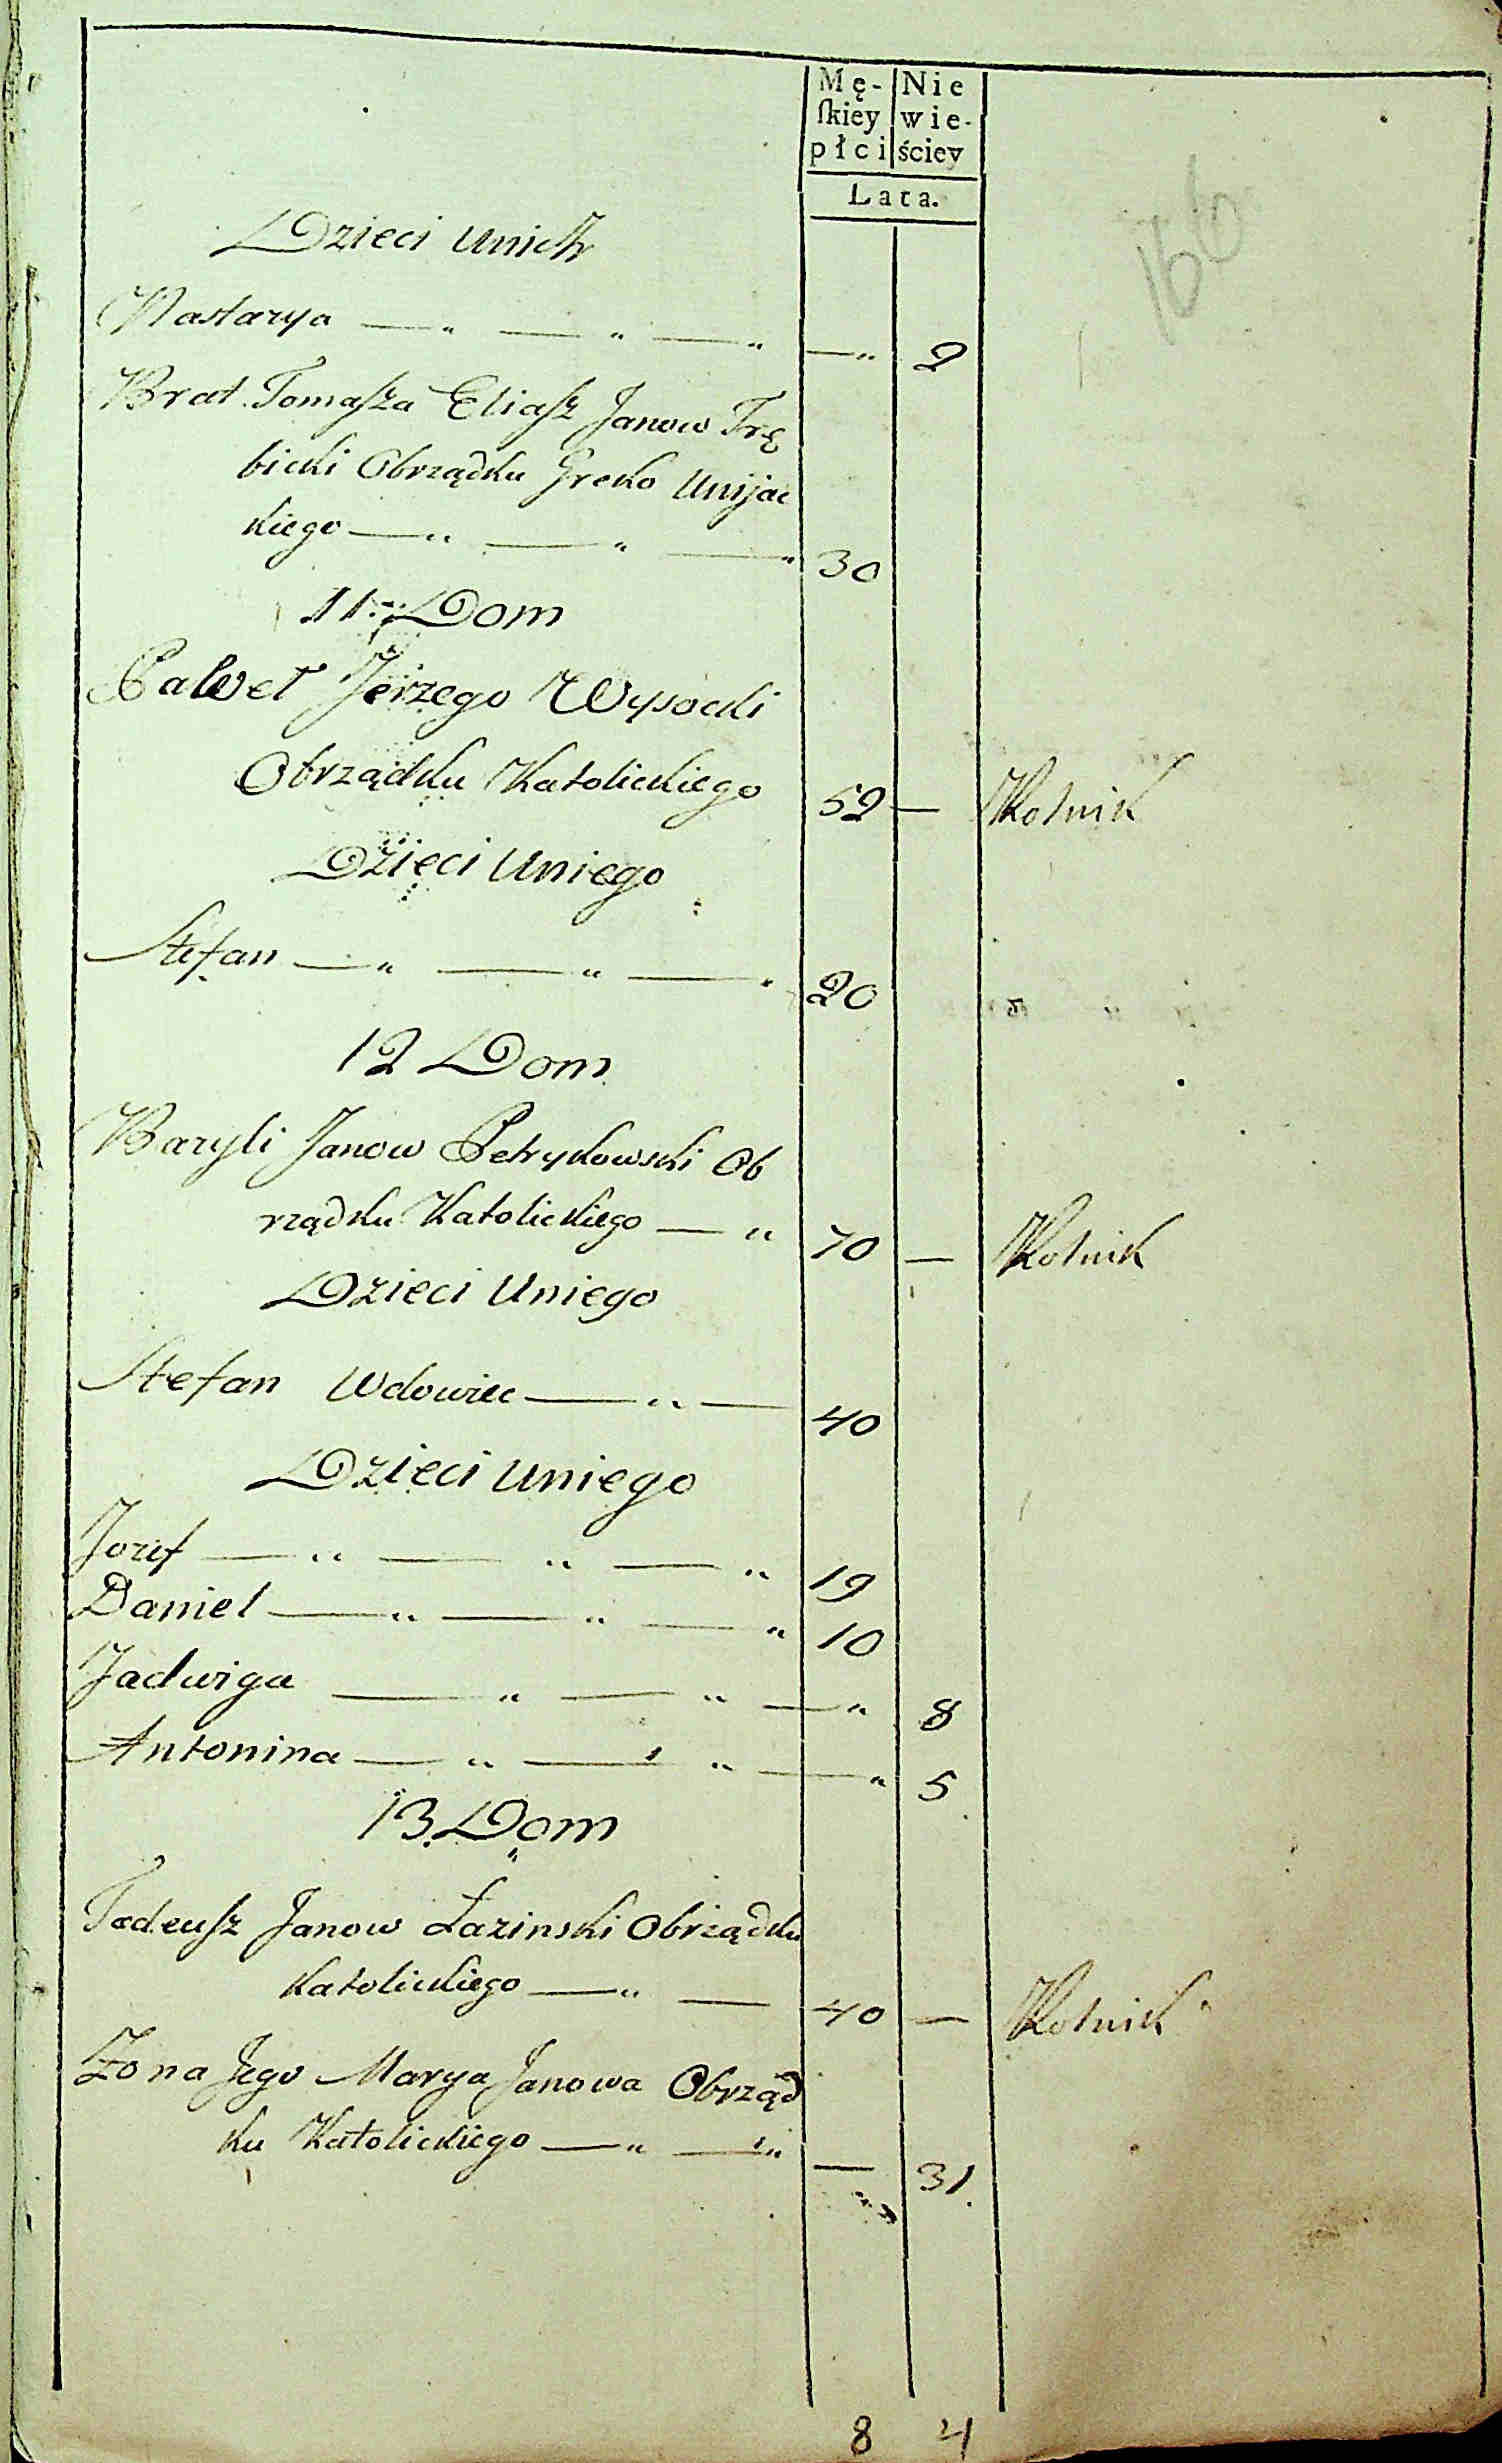 Mę- Nie
ſkiey wie-
płci ściey
Lata.
160
Dzieci unich
Nastazya — " — " — " — " 2
Brat Tomaſza Eliaſz Janow Trę
bicki Obrządku Greko Unijac
kiego — " — " — " 30
11. Dom
Pawel Jerzego Wysocki
Obrządku Katolickiego 52 — Rolnik
Dzieci Uniego
Stefan — " — " — " 20
12 Dom
Bazyli Janow Petrykowski Ob
rządku Katolickiego — " 70 — Rolnik
Dzieci Uniego
Stefan Wdowiec — " — 40
Dzieci Uniego
Jozef — " — " — " 19
Daniel — " — " — " 10
Jadwiga — " — " — " 8
Antonina — " — " — " 5
13. Dom
Tadeuſz Janow Łazinski Obrządku
Katolickiego — " — 40 — Rolnik
Zona Jego Marya Janowa Obrząd
ku Katolickiego — " — " — 31.
8 4